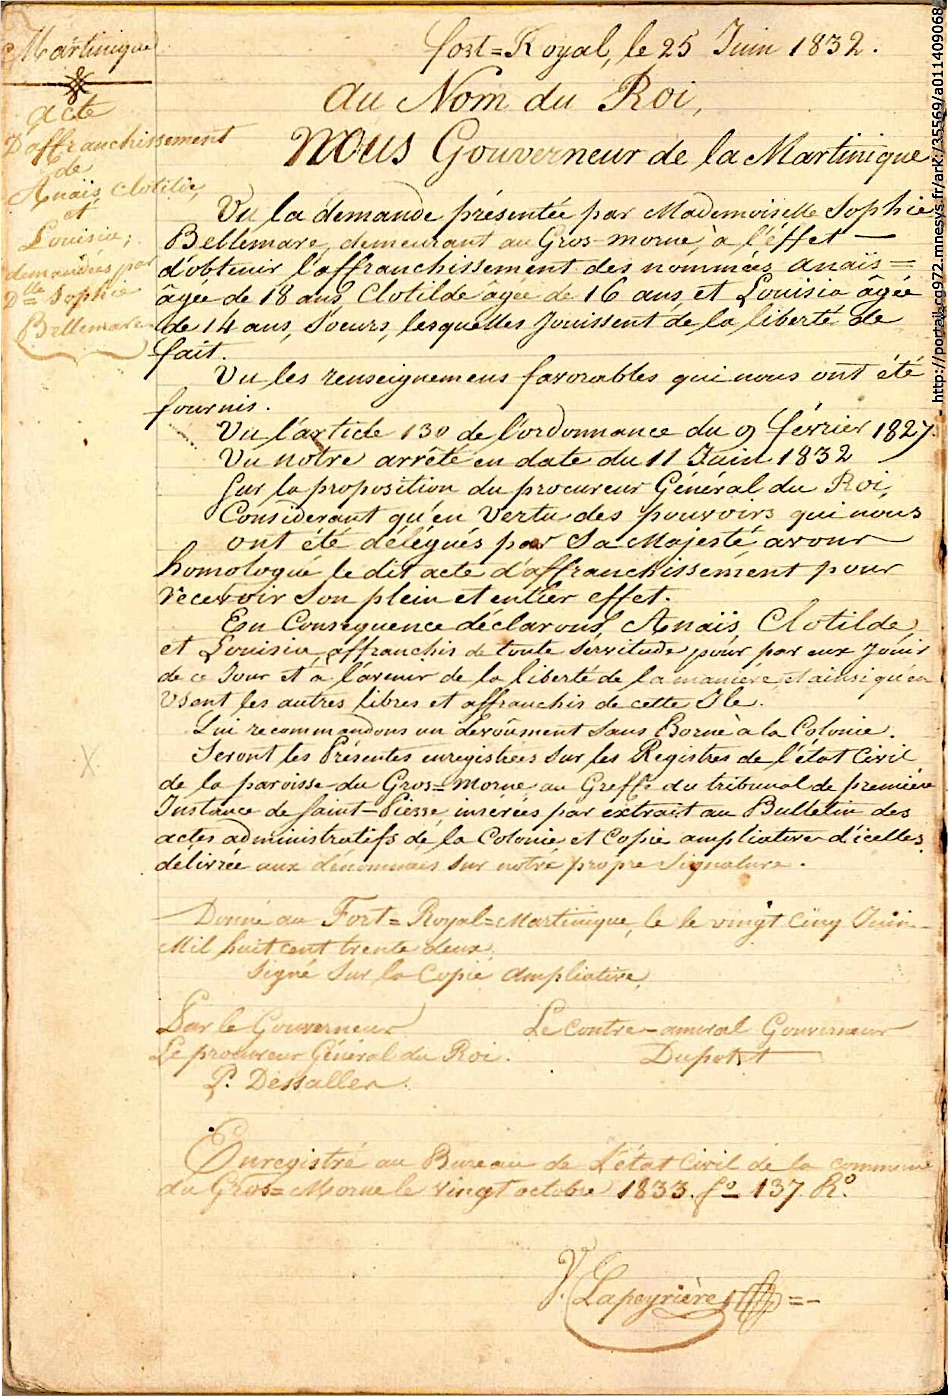 Martinique
acte
D'affranchissement
de
Anaïs Clotilde,
et
Louisia;
demandées par
Dlle Sophie
Bellemare
fort=Royal, le 25 Juin 1832.
Au Nom du Roi,
Nous Gouverneur de la Martinique
Vu la demande présentée par Mademoiselle Sophie
Bellemare, demeurant au Gros-morne, à l'éffet —
d'obtenir l'affranchissement des nommées anaïs=
âgée de 18 ans, Clotilde âgée de 16 ans, et Louisia âgée
de 14 ans, Soeurs, lesquelles Jouissent de la liberté de
fait.
Vu les renseignemens favorables qui nous ont été
fournis.
Vu l'article 130 de l'ordonnance du 9 février 1827.
Vu notre arrêté en date du 11 Juin 1832
Sur la proposition du procureur Général du Roi,
Considerant qu'en Vertu des pouvoirs qui nous
ont été délégués par Sa Majesté avons
homologué le dit acte d'affranchissement pour
recevoir Son plein et entier effet.
En Consequence déclarons, Anaïs, Clotilde
et Louisia, affranchis de toute servitude, pour par eux Jouir
de ce Jour et à l'avenir de la liberté de la manière, et ainsi qu'en
Usent les autres libres et affranchis de cette Ile.
Lui recommandons un dévoûment Sans Borne à la Colonie.
Seront les Présentes enregistrées Sur les Registres de l'état Civil
de la paroisse du Gros=Morne au Greffe du tribunal de première
Instance de Saint-Pierre, inserées par extrait au Bulletin des
actes administratifs de la Colonie et Copie ampliative d'icelles,
délivrée aux dénommés Sur notre propre Signature.
Donné au Fort=Royal=Martinique, le le vingt Cinq Juin
Mil huit cent trente deux.
Signé Sur la Copie Ampliative,
Par le Gouverneur
Le contre-amiral Gouverneur
Le procureur Général du Roi.
Dupotet
P. Dessalles.
Enregistré au Bureau de L'état Civil de la commune
du Gros=Morne le vingt octobre 1833. fo 137. Ro.
V. Lapeyrière
X
- http://portail.cg972.mnesys.fr/ark:/35569/a011409068